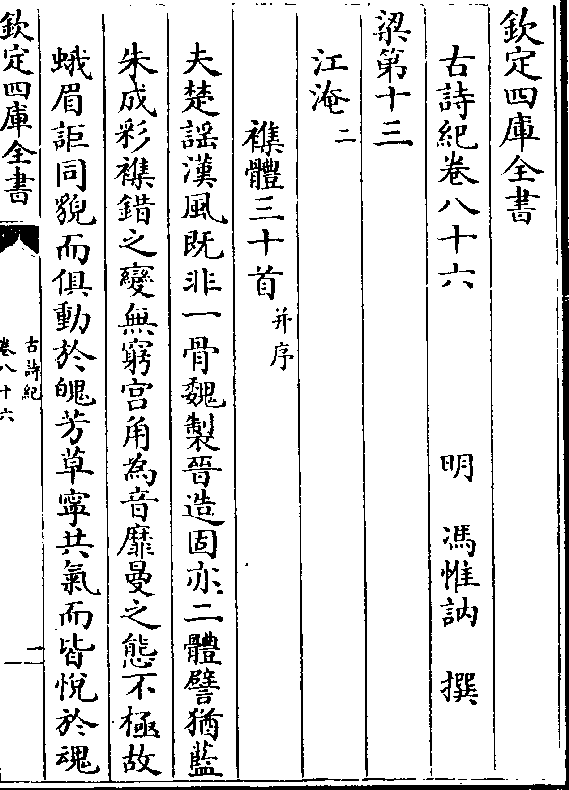 欽定四庫全書
古詩紀卷八十六　明　馮惟訥　撰
梁第十三
江淹二
襍體三十首并序
夫楚謡漢風既非一骨魏製晉造固亦二體譬猶藍
朱成彩襍錯之變無窮宫角為音靡曼之態不極故
蛾眉詎同貌而俱動於魄芳草寧共氣而皆悅於魂
欽定四庫全書
古詩紀
卷八十六
一